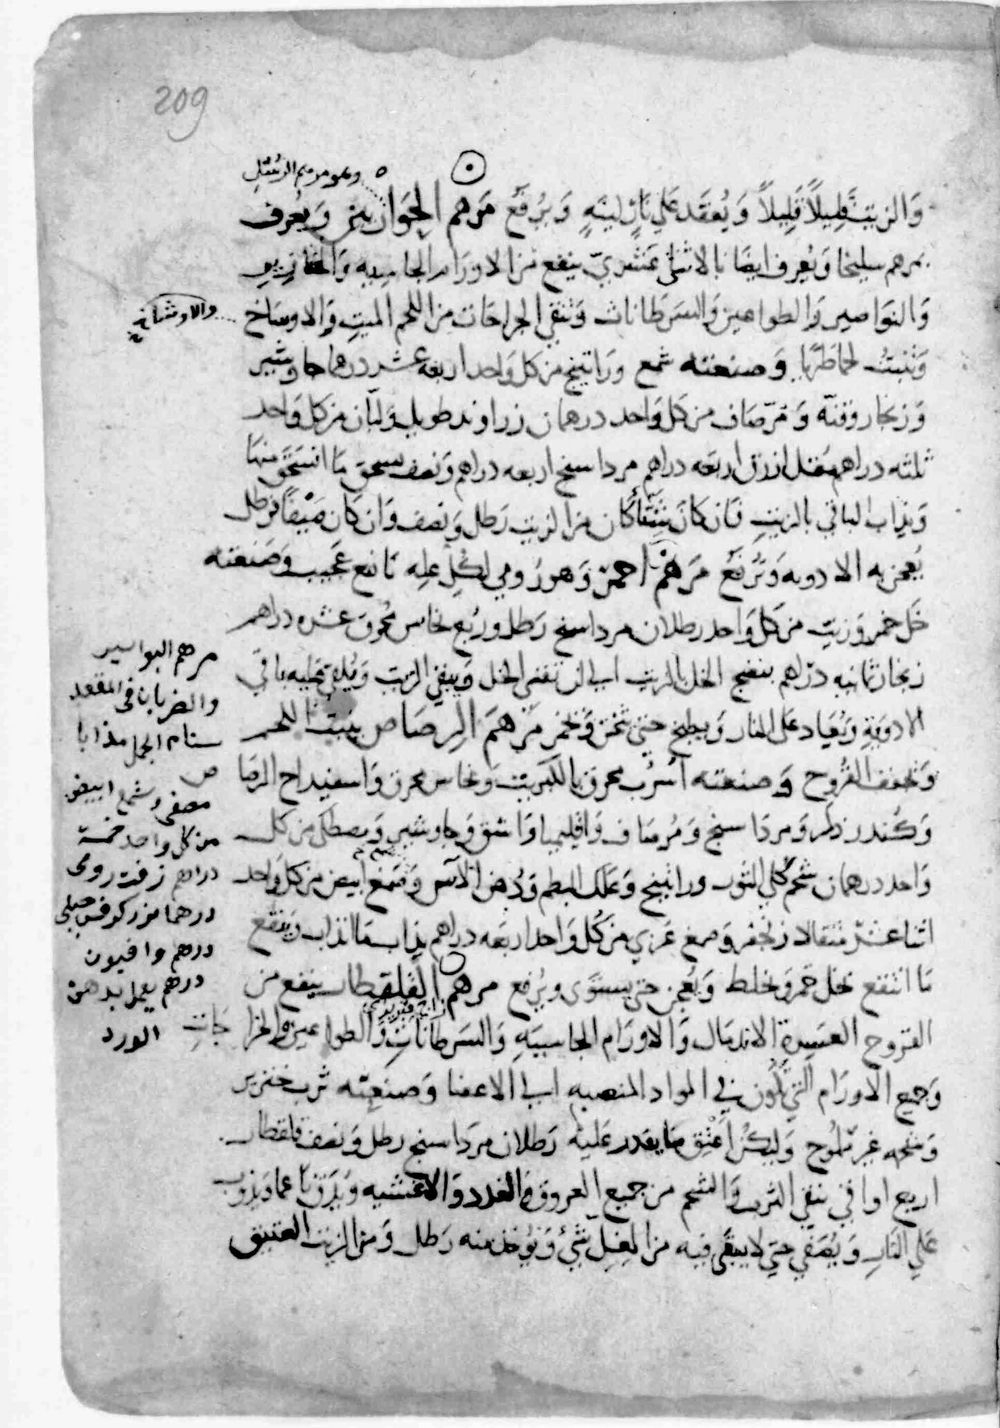 209
وهو مرهم الرسل
والزيت قليلاً قليلاً ويعقد علي نار لينه ويرفع مرهم الحواريين ويعرف
بمرهم سليخا ويعرف ايضا بالاثني عشري ينفع من الاورام الجاسيه والخنازير
والنواصير والطواعين والسرطانات وتنقي الجراحات من اللحم الميت والاوساخ
وتنبت لحما طريا وصنعته شمع وراتينج من كل واحد اربعه عشر درهما جاوشير
وزنجار وقنه ومرصاف من كل واحد درهمان زراوند طويل ولبان من كل واحد
ثلثه دراهم مقل ازرق اربعه دراهم مرداسنج اربعه دراهم ونصف يسحق ما انسحق منها
ويذاب الباقي بالزيت فان كان شتتاً كان من الزيت رطل ونصف وان كان صيفاً فرطل
يعجن به الادويه وترفع مرهم احمر وهو رومي لكل عله نافع عجيب وصنعته
خل خمر وزيت من كل واحد رطلان مرداسنج رطل وربع نحاس محرق عشره دراهم
زنجار ثمانيه دراهم ينضج الخل بالزيت الي ان تفني الخل ويبقي الزيت ويلقي عليه باقي
الادوية ويعاد على النار ويطبخ حتى تثخن وتحمر مرهم الرصاص ينبت اللحم
وتجفف القروح وصنعته اسرب محرق بالكبريت ونحاس محرق واسفيداح الرصا
وكندر ذكر ومرداسنج ومرصاف واقليميا واشق وجاوشير ومصطكى من كل
واحد درهمان شحم كلي الثور وراتينج وعلك البطم ودهن الآس وشمع ابيض من كل واحد
اثنا عشر مثقالا زنجفر وصمغ عربي من كل واحد اربعه دراهم يذاب ما انذاب وينقع
ما انتقع بخل خمر ويخلط ويعجن حتى يستوي ويرفع مرهم القلقطار ينفع من
القروح العسرة الاندمال والاورام الجاسيه والسرطانات والطواعين والخراجات
وجميع الاورام التي تكون في المواد المنصبه الي الاعضا وصنعته ثرب خنزير
وشحمه غير مملوح وليكن اعتق ما يقدر عليه رطلان مرداسنج رطل ونصف قلقطار
اربع اواقي ينقي الثرب والشحم من جميع العروق والغدد والاغشيه ويدق ناعما ويذوب
علي النار ويصفي حتي لا يبقى فيه من الثفل شئ ويؤخذ منه رطل ومن الزيت العتيق
مرهم البواسير
والضربان في المقعد
سنام الجمل مذابا
مصفى وشمع ابيض
من كل واحد خمسة
دراهم زفت رومى
درهم بزر كرفس جبلى
درهم وافيون
درهم يعمل بدهن
الورد